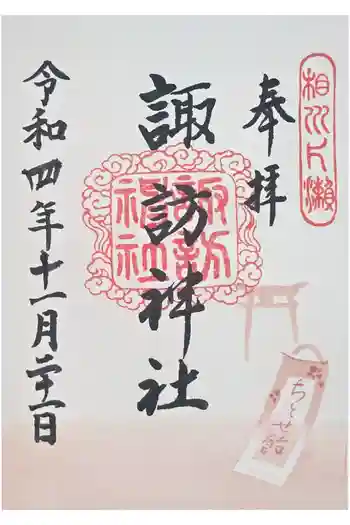 相州片瀬
奉拝
諏訪神社
諏訪神社
令和四年十一月二十一日
ちとせ飴